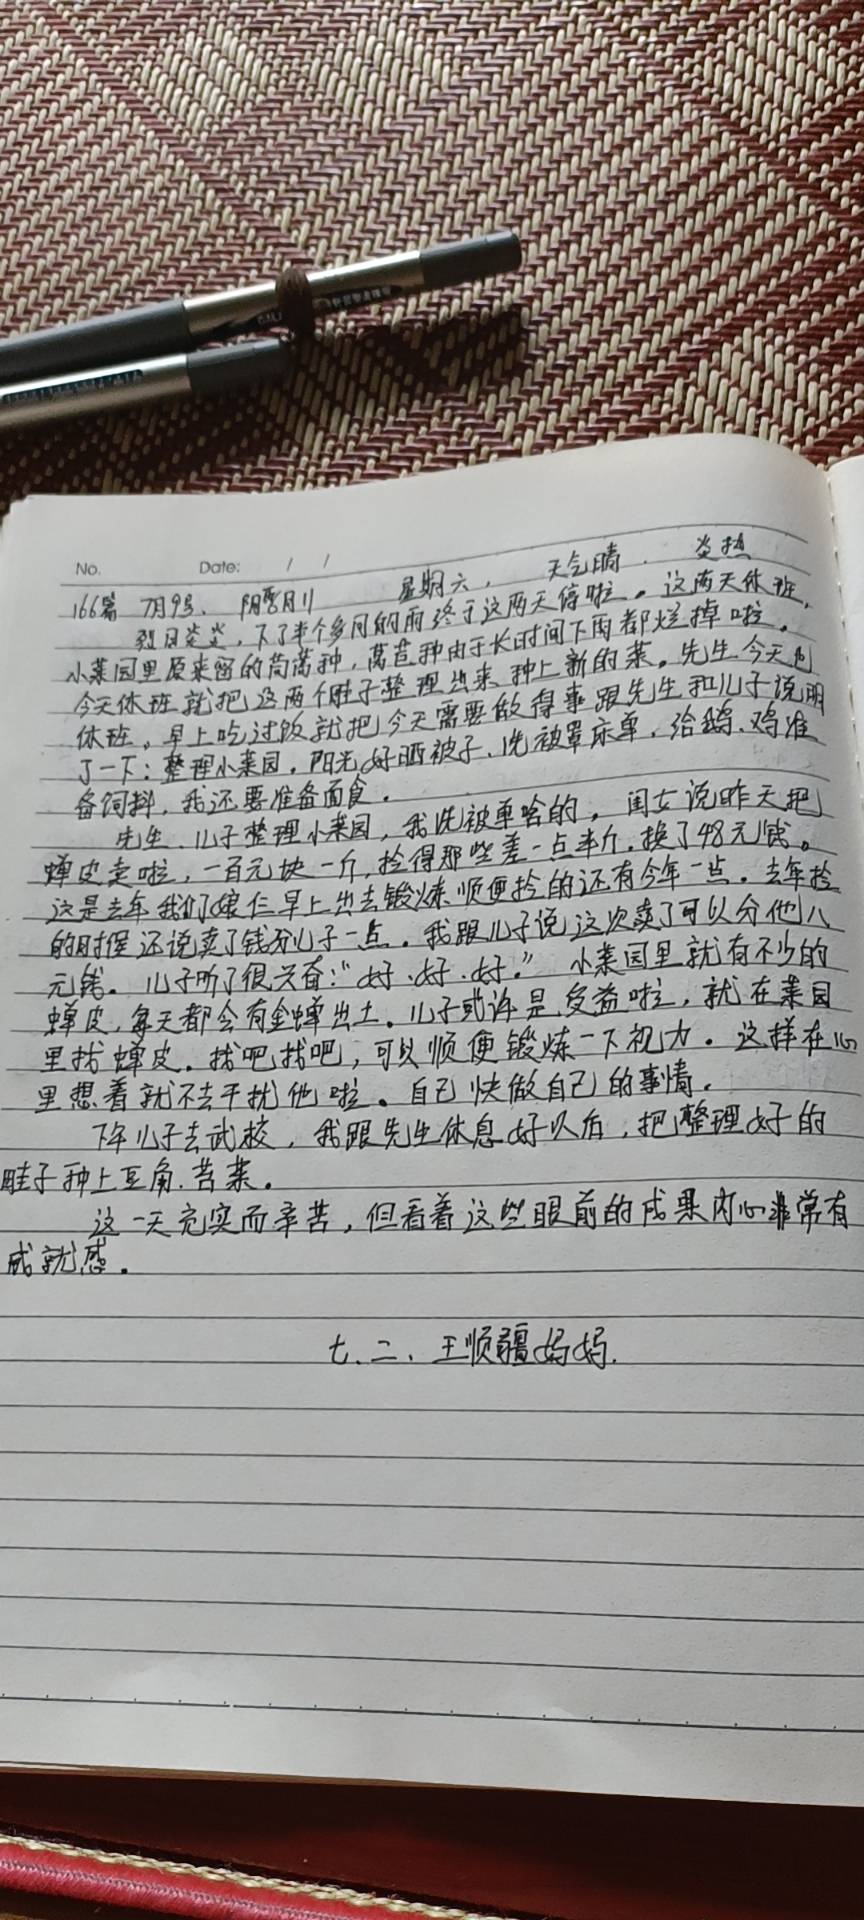 No. Date: / /
166篇 7月9号. 阴历6月11 星期六, 天气晴. 炎热
烈日炎炎,下了半个多月的雨终于这两天停啦。这两天休班,
小菜园里原来留的茼蒿种,莴苣种由于长时间下雨都烂掉啦。
今天休班就把这两个畦子整理出来种上新的菜。先生今天也
休班。早上吃过饭就把今天需要做得事跟先生和儿子说明
了一下:整理小菜园.阳光好晒被子、洗被罩床单.给鹅、鸡准
备饲料,我还要准备面食.
先生、儿子整理小菜园,我洗被单啥的。闺女说昨天把
蝉皮卖啦,一百元块一斤,捡得那些差一点半斤.换了48元钱。
这是去年我们娘仨早上出去锻炼顺便捡的还有今年一点.去年捡
的时候还说卖了钱分儿子一点.我跟儿子说这次卖了可以分他八
元钱。儿子听了很兴奋:“好.好.好.”小菜园里就有不少的
蝉皮,每天都会有金蝉出土.儿子或许是受益啦,就在菜园
里找蝉皮.找吧找吧,可以顺便锻炼一下视力.这样在心
里想着就不去干扰他啦。自己快做自己的事情.
下午儿子去武校,我跟先生休息好以后,把整理好的
畦子种上豆角.苦菜。
这一天充实而辛苦,但看着这些眼前的成果内心非常有
成就感.
七.二、王顺疆妈妈.